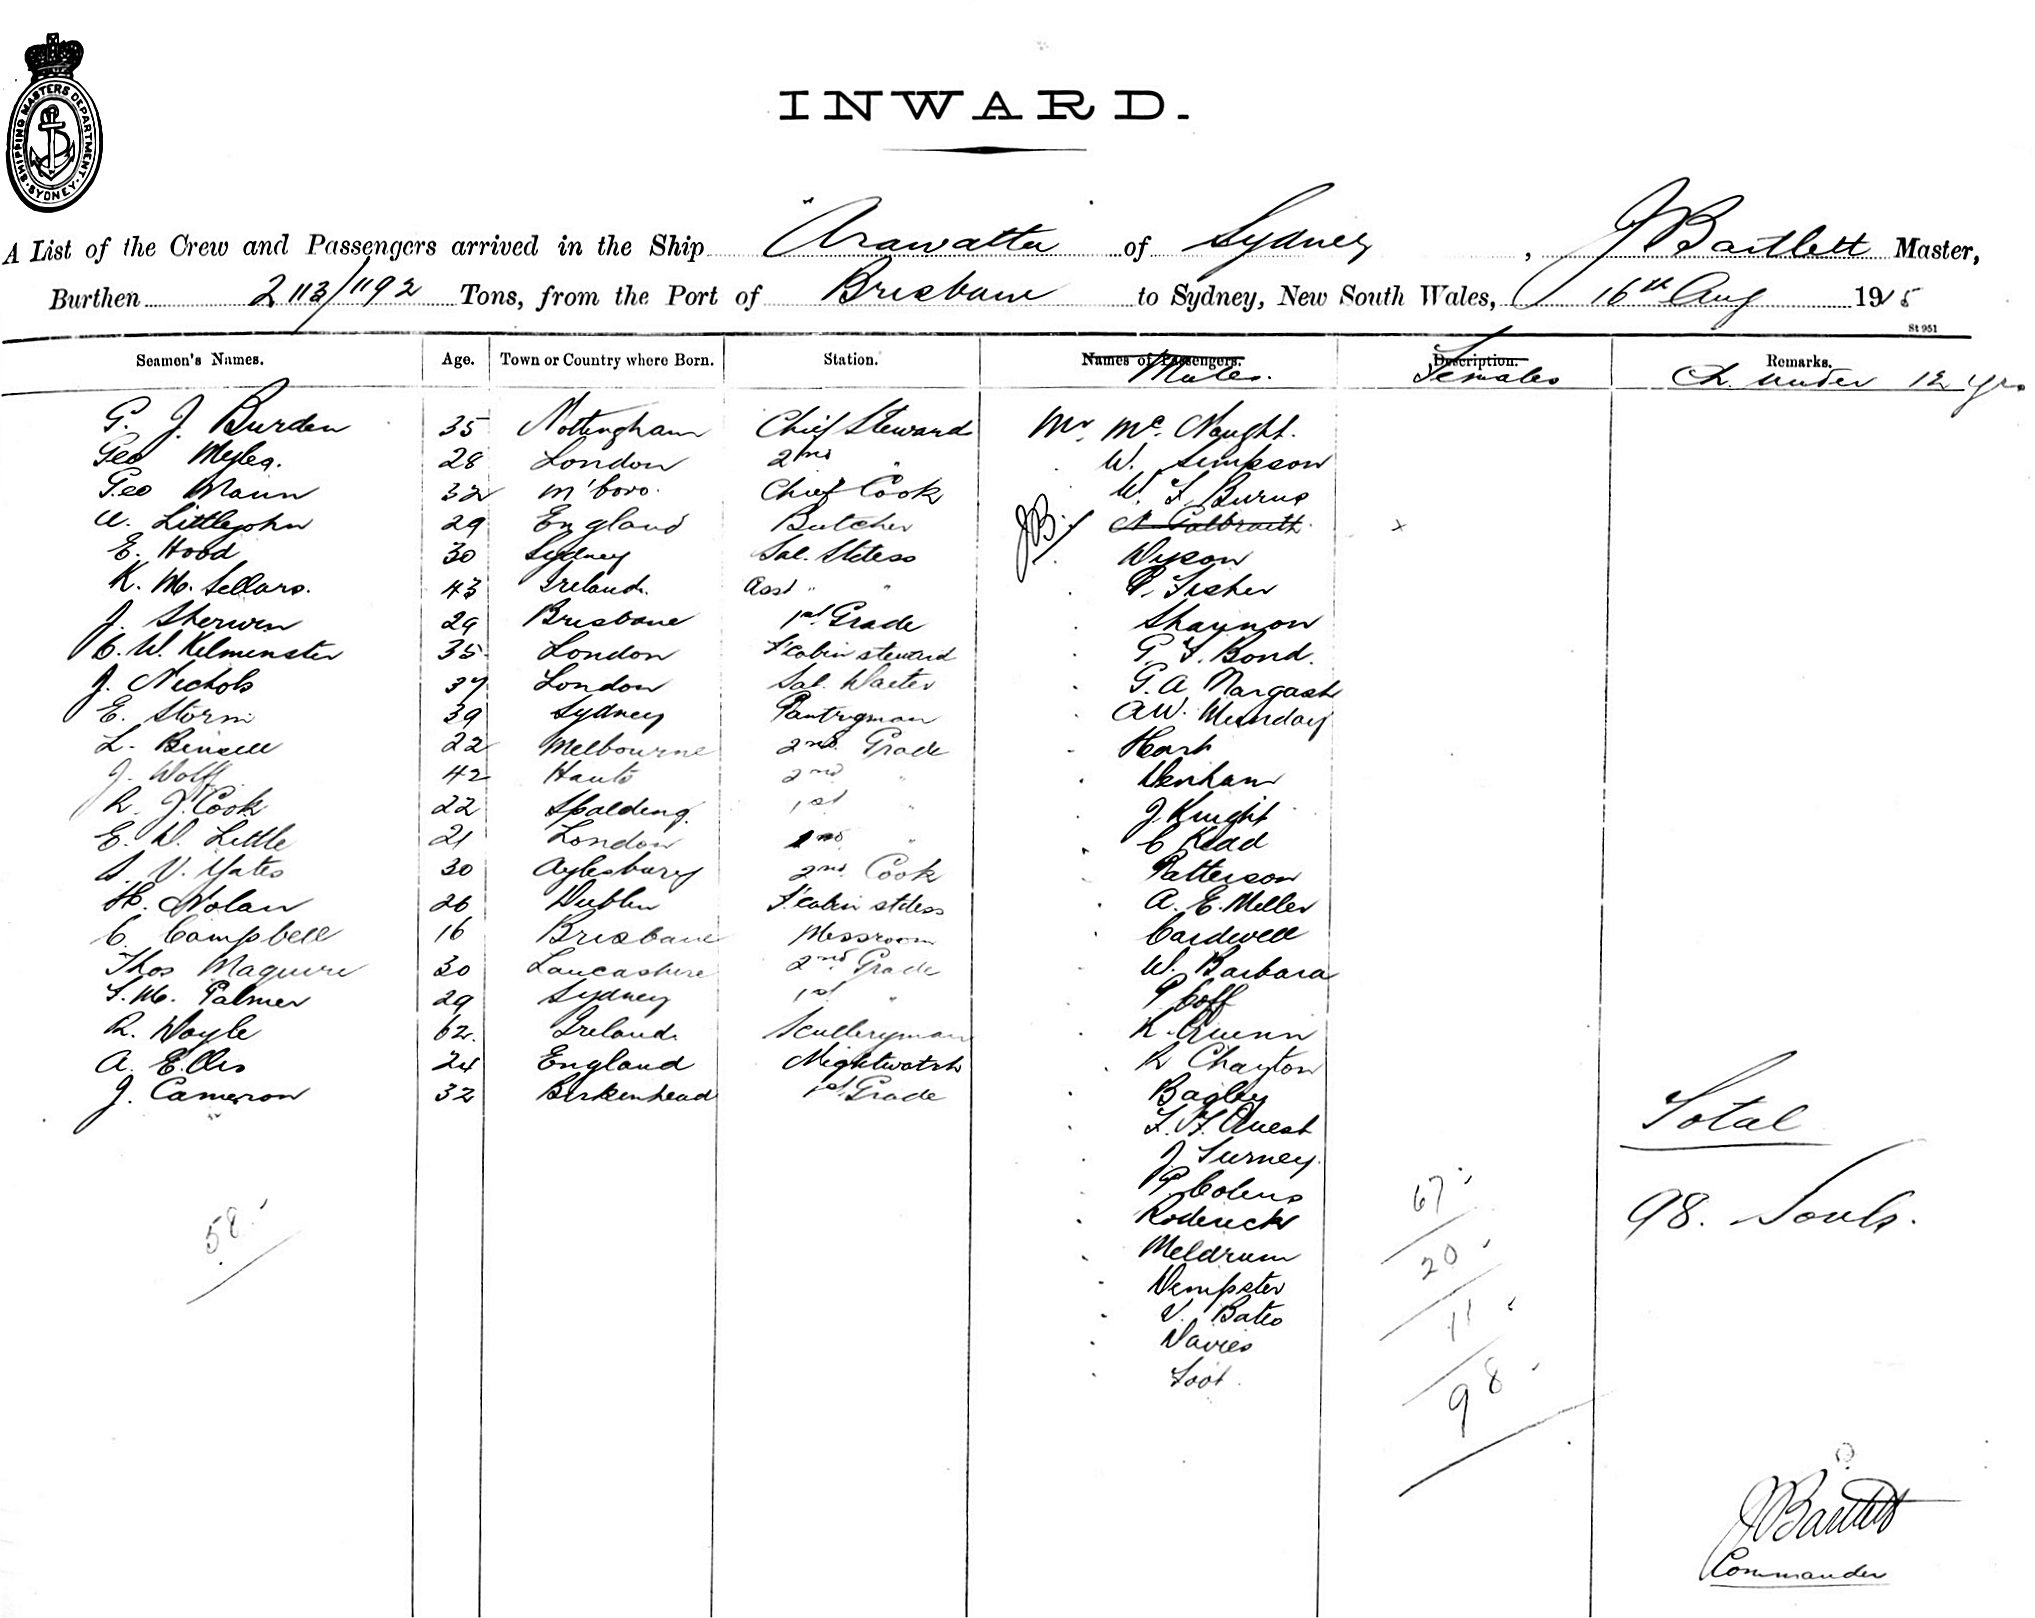 SHIPPING MASTERS DEPARTMENT. SYDNEY.
INWARD.
A List of the Crew and Passengers arrived in the Ship "Arawatta of Sydney, J Bartlett Master,
Burthen 2113/1192 Tons, from the Port of Brisbane to Sydney, New South Wales, 16th Aug 1915
St 951
Seamen's Names. Age. Town or Country where Born. Station. Names of Passengers. Males. Description. Females Remarks. Ch. under 12 yrs
G. J. Burden 35 Nottingham Chief Steward Mr. Mc. Naught.
Geo Myles. 28 London 2nd " W. Simpson
Geo Mann 32 M'boro. Chief Cook W. F. Burns
W. Littlejohn 29 England Butcher JB. N Galbraith x
E. Hood 30 Sydney Sal. Stdess Dyson
K. M. Sellars. 43 Ireland. Asst " " P. Fisher
J. Sherwin 29 Brisbane 1st Grade Shannon
C. W. Kelminster 35 London F'cabin steward G. F. Bond.
J. Nichols 37 London Sal. Waiter G. A.
E. Storm 39 Sydney Pantryman A W. Munday
L. 22 Melbourne 2nd Grade
J. Wolff 42 Hants 2nd " Denham
R. J. Cook 22 Spalding. 1st " J. Knight
E. D. Little 21 London 2nd " C
V. Yates 30 Aylesbury 2nd Cook Patterson
H. Nolan 26 Dublin F'cabin stdess A. E. Miller
C. Campbell 16 Brisbane Messroom Cardwell
Thos Maguire 30 Lancashire 2nd Grade W. Barbara
S. M. Palmer 29 Sydney 1st " P Goff
R. Doyle 62. Ireland. Sculleryman K. Quinn
A. Ellis 24 England Nightwatch R Chayton
J. Cameron 32 Birkenhead 1st Grade Bagley
Total
F. F. Quest
J. Turney.
P
58.
67.
98. Souls.
Roderick
Meldrum
20.
Dempster
V. Bates
11.
Davies
Foot.
98.
J Bartlett
Commander